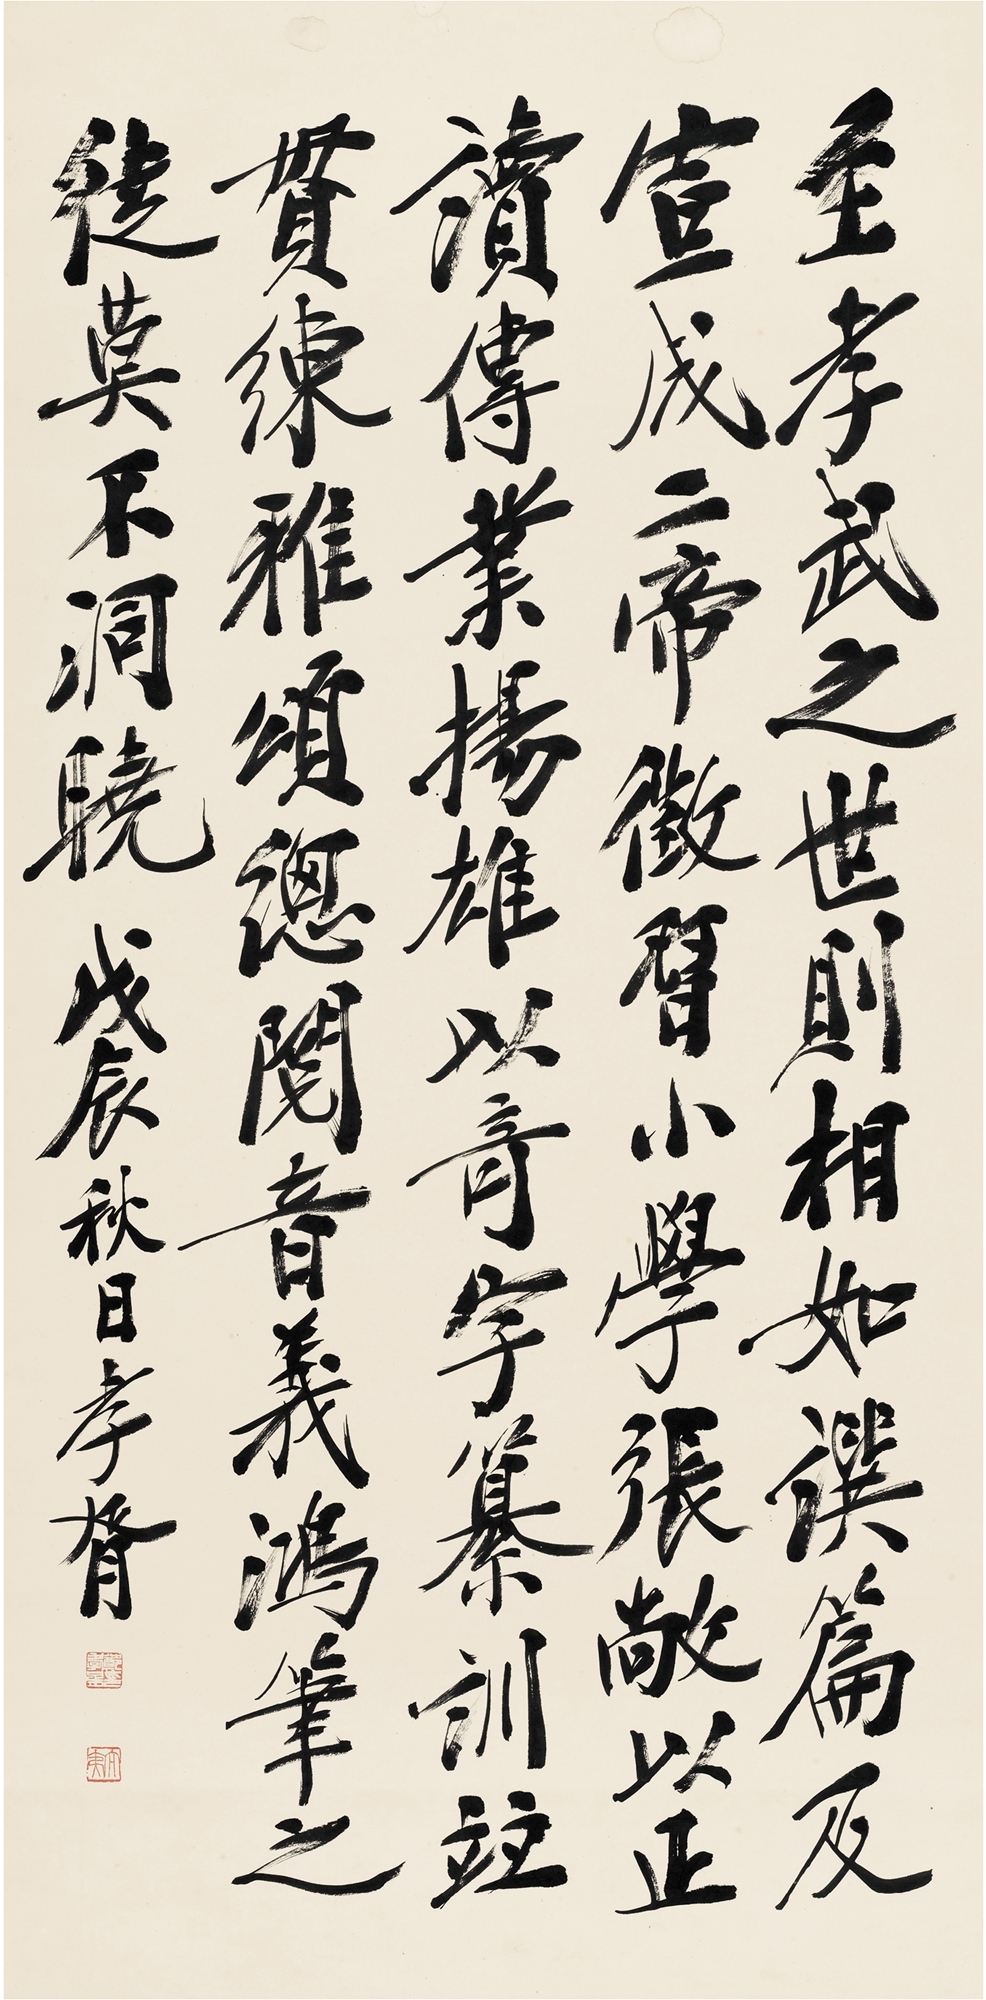 至孝武之世則相如譔篇及
宣成二帝徵習小學張敞以正
讀傳業揚雄以奇字纂訓註
貫練雅頌總閱音義鴻筆之
徒莫不洞曉 戊辰秋日孝胥